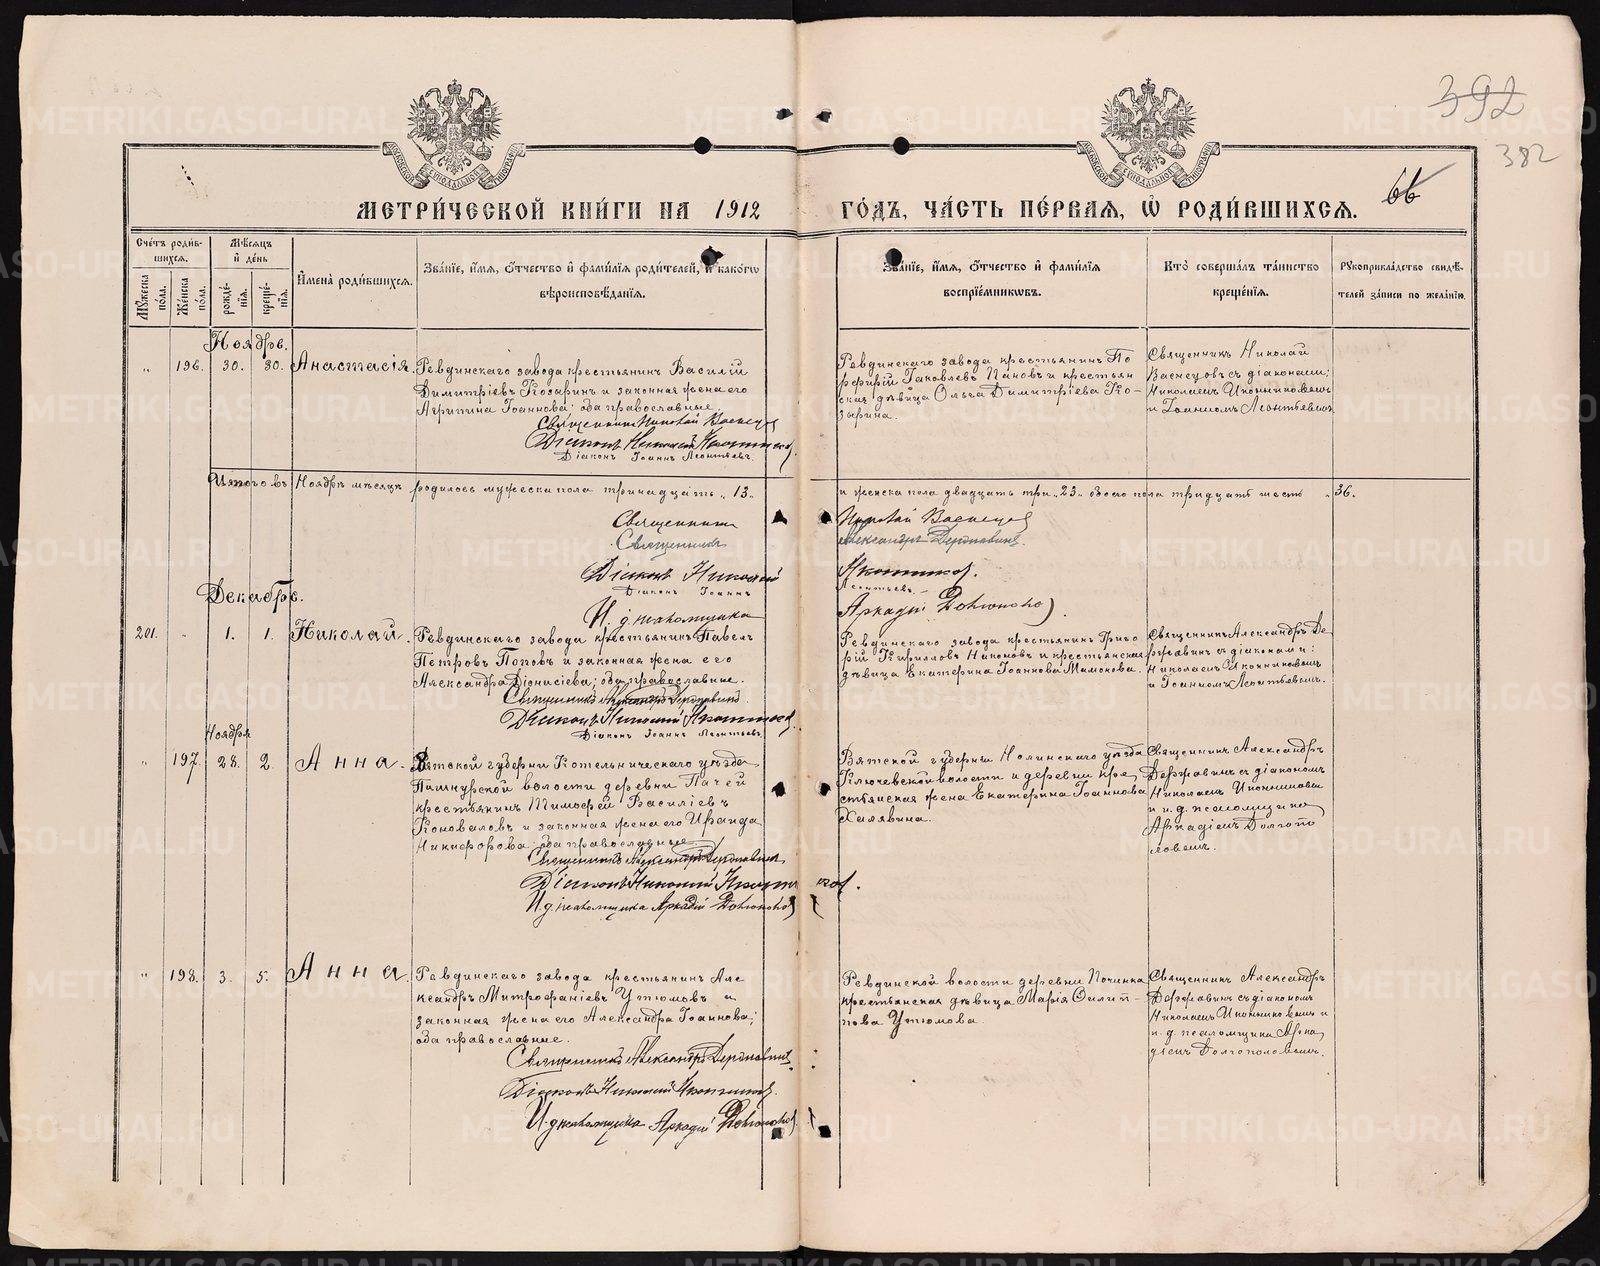 392
382
66
МЕТРИ́ЧЕСКОЙ КНИ́ГИ НА 1912 ГО́ДЪ, ЧА́СТЬ ПЕ́РВАЯ, Ѿ РОДИ́ВШИХСЯ.
Сче́тъ роди́в-
шихся.
Му́жеска по́ла.
Же́нска по́ла.
Мѣ́сяцъ
и де́нь
рожде́нїя.
креще́нїя.
Имена̀ роди́вшихся.
Зва́нїе, и́мя, о́тчество и фами́лїя роди́телей, и како́гѡ
вѣроисповѣ́данїя.
Зва́нїе, и́мя, о́тчество и фами́лїя
воспрїе́мникѡвъ.
Кто̀ соверша́лъ та́инство
креще́нїя.
Рукоприкла́дство свидѣ́-
телей за́писи по жела́нїю.
Ноябрь.
„ 196. 30. 30. Анастасія.
Ревдинскаго завода крестьянинъ Василій
Димитріевъ Козыринъ и законная жена его
Агрипина Іоаннова; оба православные
Священникъ Николай Васнецов
Діаконъ Николай Иконников
Діаконъ Іоаннъ Леонтьевъ.
Ревдинскаго завода крестьянинъ По
рфирій Іаковлевъ Пановъ и крестьян
ская дѣвица Ольга Димитріева Ко-
зырина.
Священникъ Николай
Васнецовъ съ діаконами:
Николаемъ Иконниковымъ
и Іоанномъ Леонтьевымъ
Итого въ Ноябрѣ мѣсяцѣ родилось мужеска пола тринадцать „13„ и женска пола двадцать три „23„ обоего пола тридцать шесть „36.
Священникъ Николай Васнецов
Священникъ Александръ Державинъ.
Діаконъ Николай Иконников.
Діаконъ Іоаннъ Леонтьевъ.
И. д. псаломщика Аркадій Долгополов.
Декабрь.
201. „ 1. 1. Николай.
Ревдинскаго завода крестьянинъ Павелъ
Петровъ Поповъ и законная жена его
Александра Діонисіева; оба православные.
Священникъ Александръ Державинъ.
Діаконъ Николай Иконников.
Діаконъ Іоаннъ Леонтьевъ.
Ревдинскаго завода крестьянинъ Григо
рій Кирилловъ Никоновъ и крестьянская
дѣвица Екатерина Іоаннова Мамонова.
Священникъ Александръ Де
ржавинъ съ діаконами:
Николаемъ Иконниковымъ
и Іоанномъ Леонтьевымъ.
Ноября
„ 197. 28. 2. Анна.
Вятской губерніи Котельническаго уѣзда
волости деревни Пачей
крестьянинъ Тимофей Василіевъ
Коноваловъ и законная жена его Ираида
Никифорова; оба православные
Священникъ Александръ Державинъ
Діаконъ Николай Иконников.
И. д. псаломщика Аркадій Долгополов
Вятской губерніи Нолинскаго уѣзда
Ключевской волости и деревни кре
стьянская жена Екатерина Іоаннова
Халявина.
Священникъ Александръ
Державинъ съ діакономъ
Николаемъ Иконниковымъ
и и. д. псаломщика
Аркадіемъ Долгопо
ловымъ.
„ 198. 3. 5. Анна.
Ревдинскаго завода крестьянинъ Але
ксандръ Митрофаніевъ Утюмовъ и
законная жена его Александра Іоаннова;
оба православные.
Священникъ Александръ Державинъ
Діаконъ Николай Иконников.
И. д. псаломщика Аркадій Долгополов
Ревдинской волости деревни Починка
крестьянская дѣвица Марія Филип-
пова Утюмова.
Священникъ Александръ
Державинъ съ діакономъ
Николаемъ Иконниковымъ и
и. д. псаломщика Арка
діемъ Долгополовымъ.
METRIKI.GASO-URAL.RU